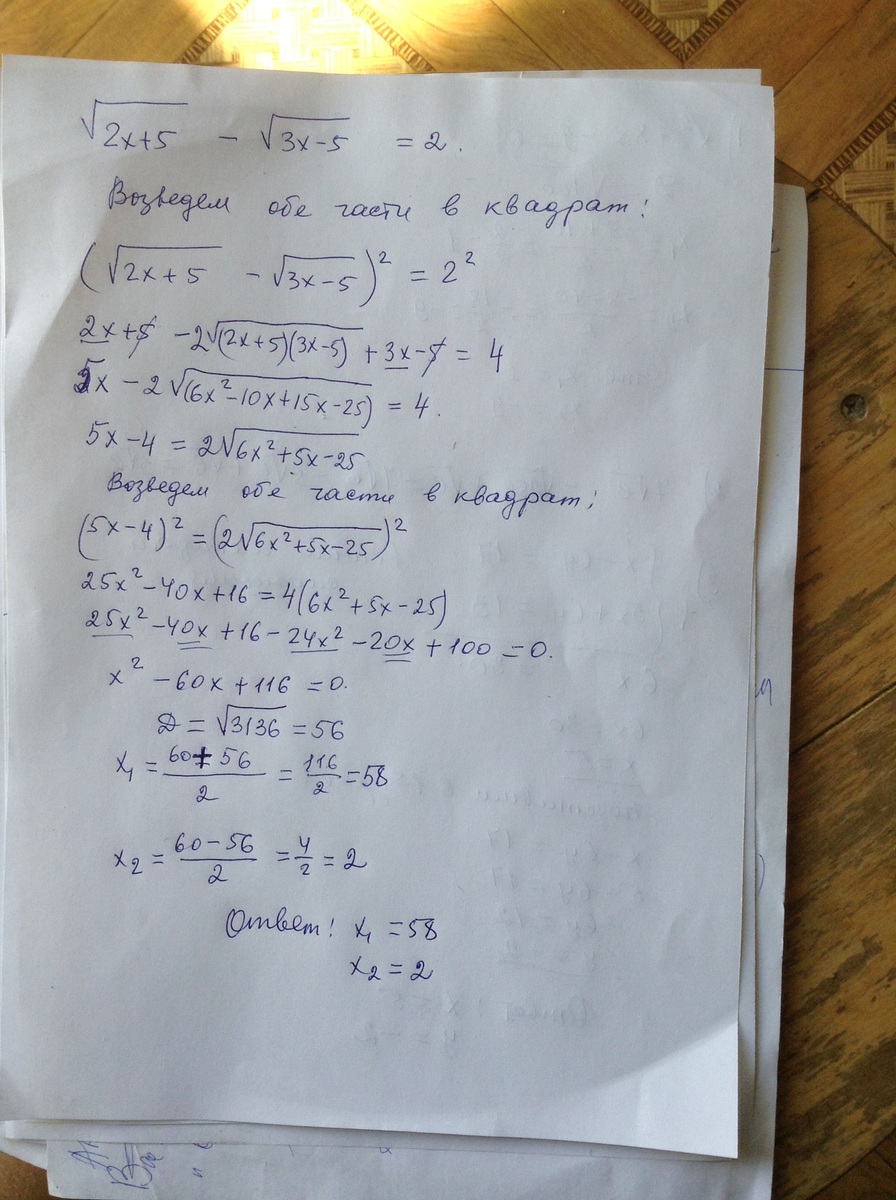 √2x+5 - √3x-5 = 2.
Возведем обе части в квадрат:
(√2x+5 - √3x-5)² = 2²
2x+5 -2√(2x+5)(3x-5) + 3x-5 = 4
5x - 2√(6x²-10x+15x-25) = 4.
5x-4 = 2√6x²+5x-25
Возведем обе части в квадрат:
(5x-4)² = (2√6x²+5x-25)²
25x²-40x+16 = 4(6x²+5x-25)
25x²-40x+16-24x²-20x+100 = 0.
x²-60x+116 = 0.
D = √3136 = 56
x₁ = (60+56)/2 = 116/2 = 58
x₂ = (60-56)/2 = 4/2 = 2
Ответ: x₁ = 58
x₂ = 2